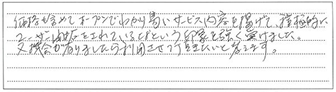 価格も含めてオープンでわかり易いサービス内容を掲げて、積極的に
ユーザー対応をされているなという印象を強く受けました。
又機会が有りましたら利用させて頂きたいと考えます。